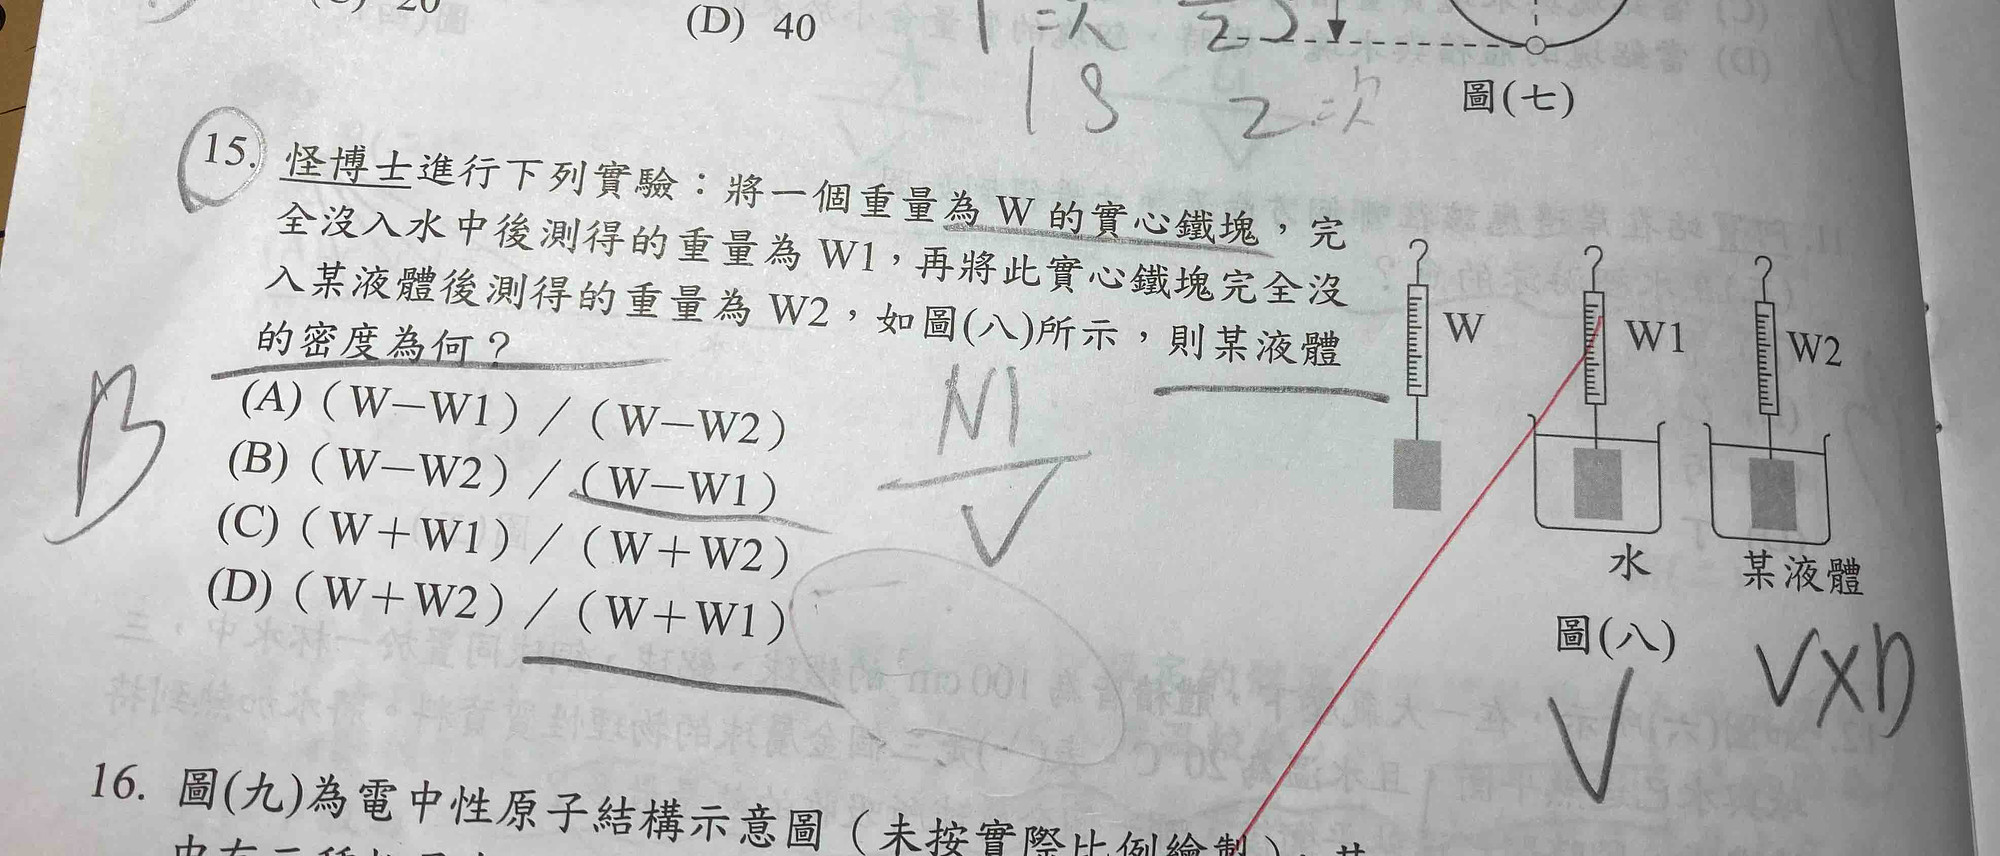 (D) 40
18
2次
圖(七)
15. 怪博士進行下列實驗：將一個重量為 W 的實心鐵塊，完
全沒入水中後測得的重量為 W1，再將此實心鐵塊完全沒
入某液體後測得的重量為 W2，如圖(八)所示，則某液體
的密度為何？
(A)（W－W1）／（W－W2）
(B)（W－W2）／（W－W1）
(C)（W＋W1）／（W＋W2）
(D)（W＋W2）／（W＋W1）
B
W
W1
W2
水
某液體
圖(八)
V
V×D
16. 圖(九)為電中性原子結構示意圖（未按實際比例繪製）。其